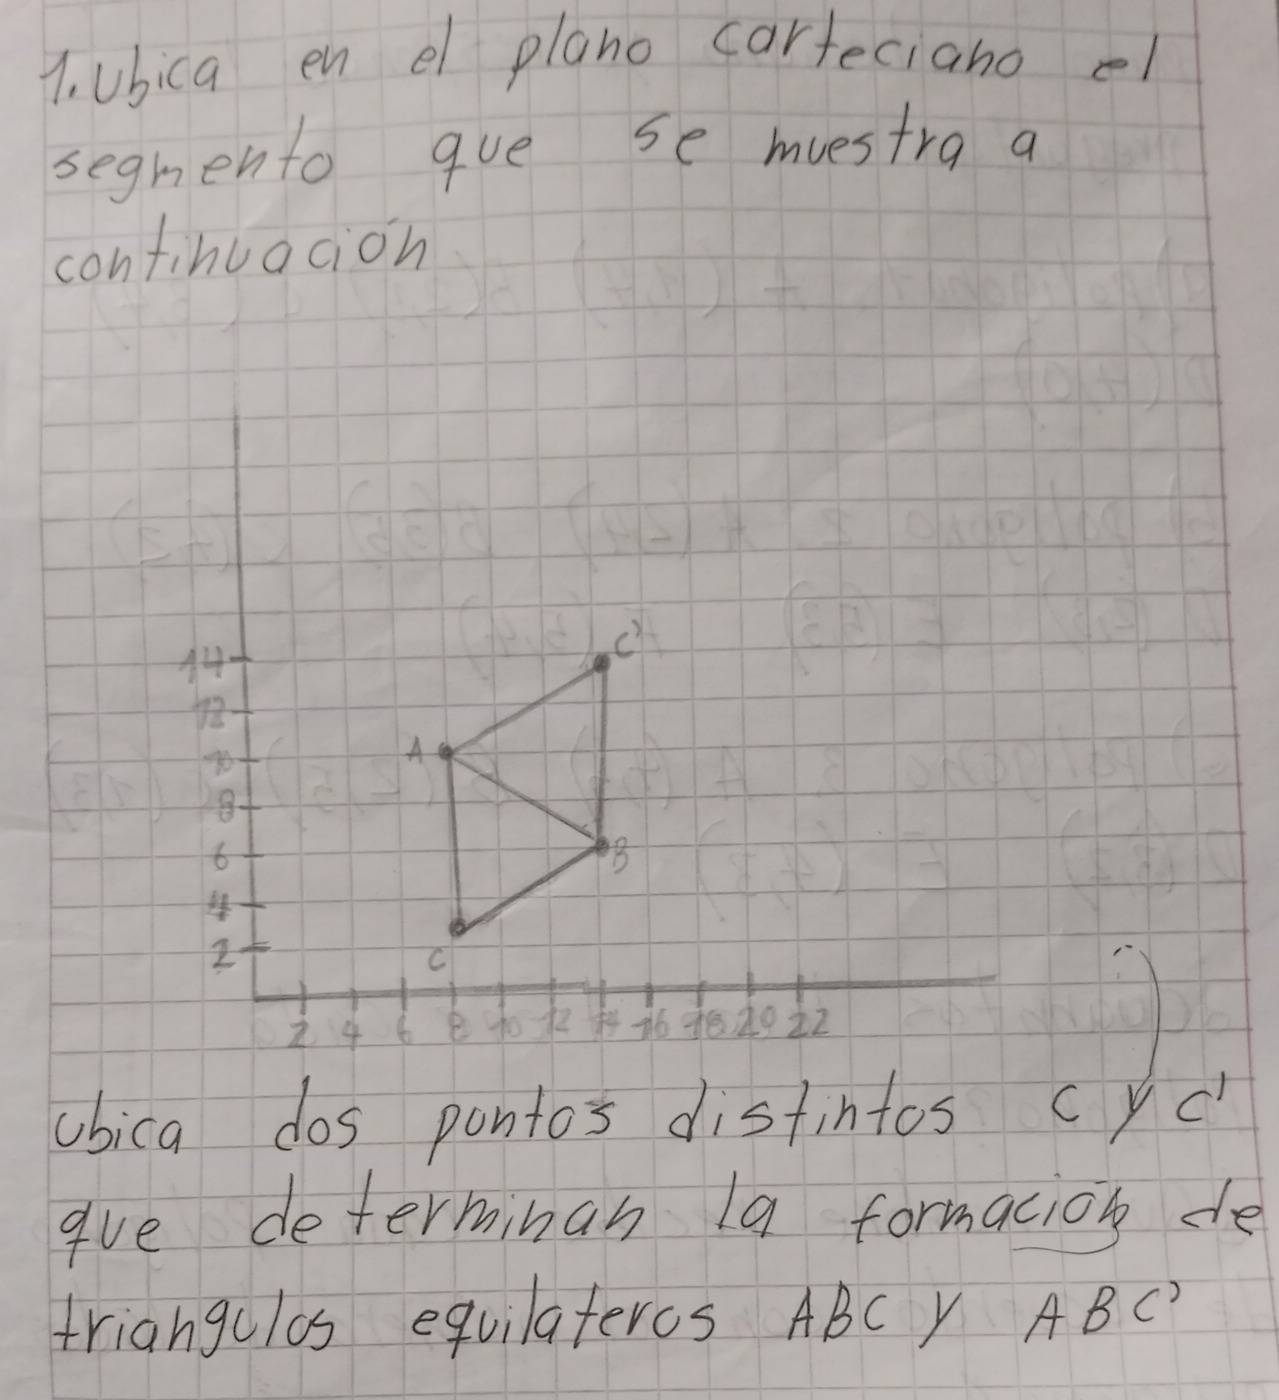 1. Ubica en el plano carteciano el
segmento que se muestra a
continuación
14
12
10
8
6
4
2
C'
A
B
C
2 4 6 8 10 12 14 16 18 20 22
Ubica dos puntos distintos C y C'
que determinan la formación de
triangulos equilateros ABC y ABC'